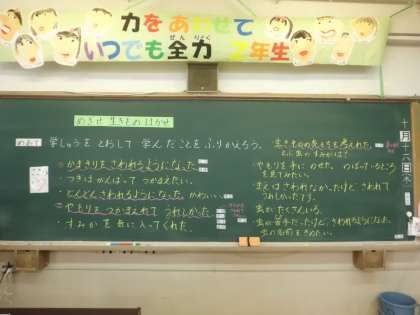 力をあわせて
いつでも全力 2年生
ぜんりょく
めざせ 生きものはかせ
めあて 学しゅうをとおして 学んだことをふりかえろう。
・かまきりをさわれるようになった。
・つぎはがんばってつかまえたい。
・どんどんさわれるようになった。かわいい。
・やもりをつかまえれてうれしかった。
・すみかを気に入ってくれた。
生きものの気もちを考えた。
・やもりを手にのせた。
ところを見てみたい。
まえはさわれなかったけど、さわれてうれしかったです。
虫がたくさんいる。
虫が苦手だったけど、さわれるようになった。
虫の名前をきめたい。
十月十六日